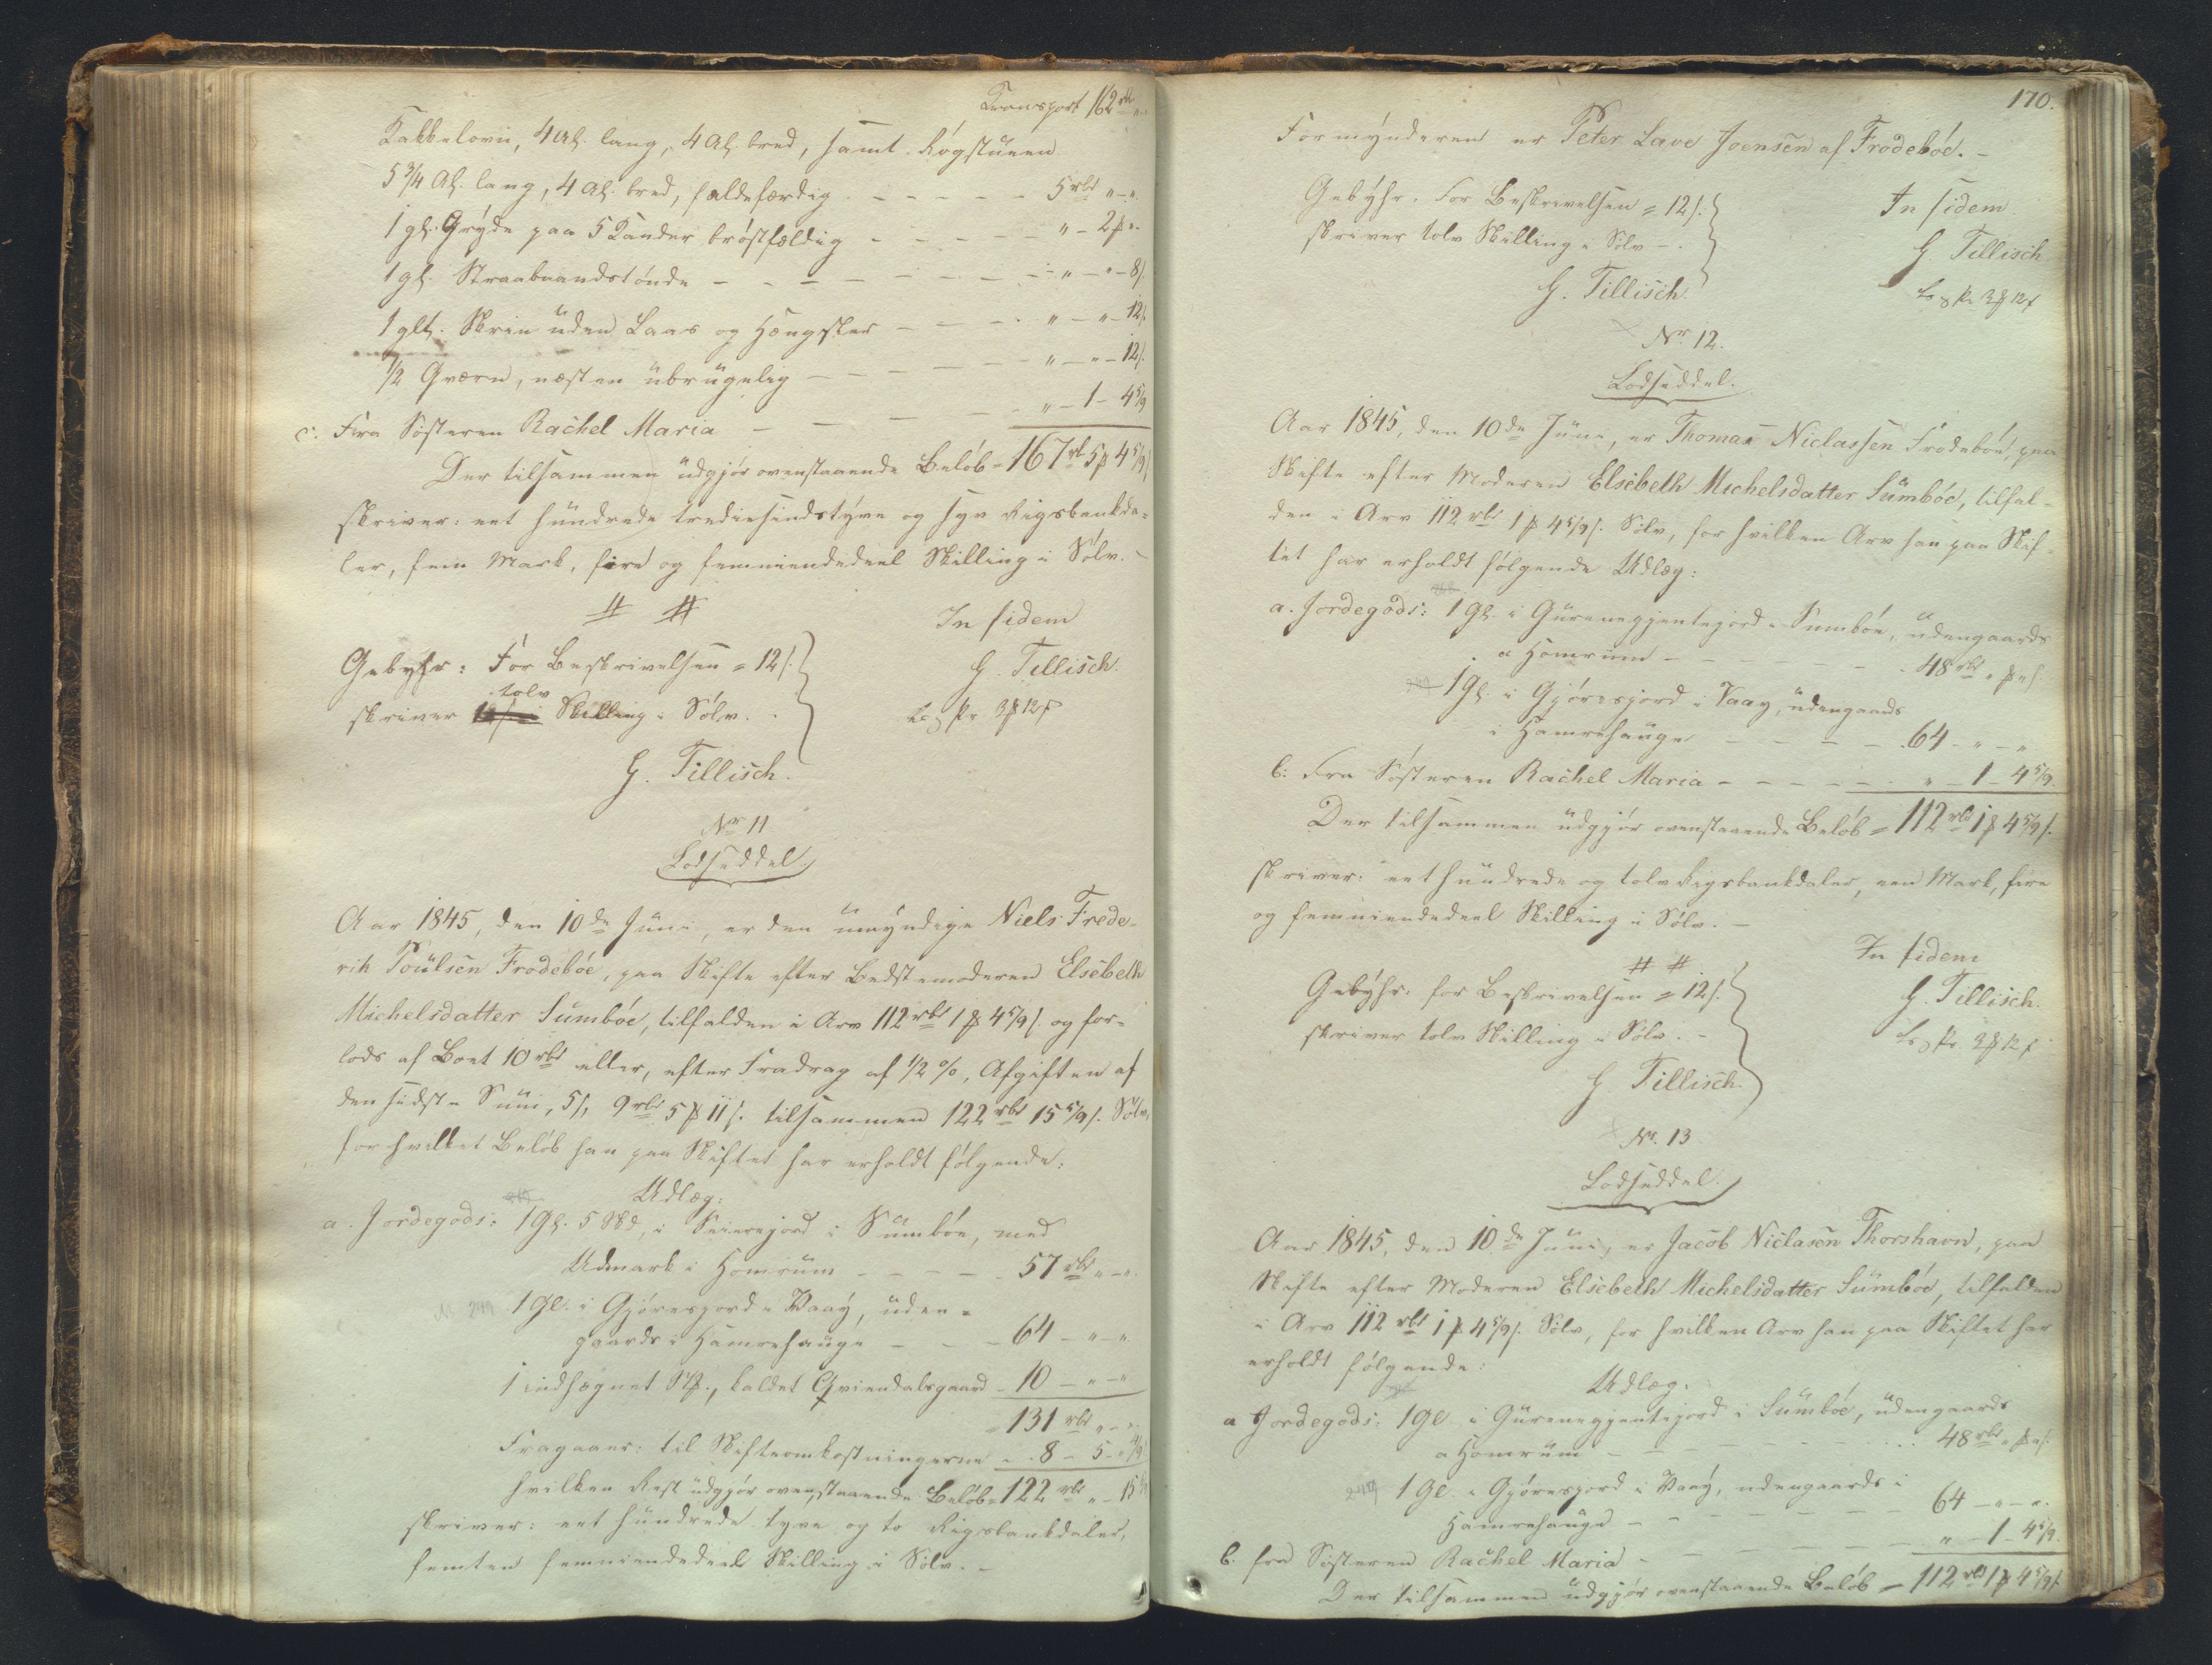 Transport 162 rbd „ „
Kakkelovn, 4 Al. lang, 4 Al. bred, samt Røgstuen
5 3/4 Al. lang, 4 Al. bred, faldefærdig - - - - - 5 rbd „ - „
1 gl. Gryde paa 5 Kander brøstfældig - - - - - „ - 2 ƒ „
1 gl. Straabaandstønde - - - - - - - - „ - „ - 8 ſ
1 glt. Skrin uden Laas og Hængsler - - - - „ - „ - 12 ſ
1/2 Qværn, næsten ubrugelig - - - - - „ - „ - 12 ſ
c. Fra Søsteren Rachel Maria - - - - - „ - 1 - 4 5/9
Der tilsammen udgjør ovenstaaende Beløb = 167 rbd 5 ƒ 4 5/9 ſ
skriver: eet hundrede trediesindstyve og syv Rigsbankda-
ler, fem Mark, fire og femniendedeel Skilling i Sølv. -
# #
In fidem
Gebyhr: For Beskrivelsen = 12 ſ.
G. Tillisch.
tolv
skriver Skilling i Sølv.
3 ƒ 12 ſ
G. Tillisch.
Nr 11
Lodseddel.
Aar 1845, den 10de Juni, er den umyndige Niels Frede-
rik Poulsen Frodebøe, paa Skifte efter Bedstemoderen Elsebeth
Michelsdatter Sumbøe, tilfalden i Arv 112 rbd 1 ƒ 4 5/9 ſ. og for-
lods af Boet 10 rbd eller, efter Fradrag af 1/2 %, Afgiften af
den sidste Sum, 5 ſ, 9 rbd 5 ƒ 11 ſ. tilsammen 122 rbd 15 5/9 ſ. Sølv,
for hvilket Beløb han paa Skiftet har erholdt følgende:
Udlæg:
a. Jordegods: 1 Gl. 5 Skd. i Seierejord i Sumbøe, med
Udmark i Homrum - - - - - 57 rbd „ - „
1 Gl. i Gjøresjord i Vaay, uden-
gaards i Hamrehauge - - - 64 - „ - „
1 indhegnet Stk., kaldet Qviendalsgaard - 10 - „ - „
= 131 rbd „ - „
Fragaaer: til Skifteomkostningerne - 8 - 5 - 4/9
hvilken Rest udgjør ovenstaaende Beløb = 122 rbd „ - 15 5/9
skriver: eet hundrede tyve og to Rigsbankdaler,
femten femniendedeel Skilling i Sølv. -
170.
Formynderen er Peter Lave Joensen af Frodebøe. -
Gebyhr. For Beskrivelsen = 12 ſ.
In fidem
skriver tolv Skilling i Sølv -.
G. Tillisch
G. Tillisch.
3 ƒ 12 ſ
Nr. 12.
Lodseddel.
Aar 1845, den 10de Juni, er Thomas Niclassen Frodebøe, paa
Skifte efter Moderen Elsebeth Michelsdatter Sumbøe, tilfal-
den i Arv 112 rbd 1 ƒ 4 5/9 ſ. Sølv, for hvilken Arv han paa Skif-
tet har erholdt følgende Udlæg:
a. Jordegods: 1 Gl. i Gureneggentejord i Sumbøe, udengaards
a Homrum - - - - - - - 48 rbd „ ƒ „ ſ.
1 Gl. i Gjøresjord i Vaay, udengaards
i Hamrehauge - - - - - 64 - „ - „
b: Fra Søsteren Rachel Maria - - - - - „ - 1 - 4 5/9.
Der tilsammen udgjør ovenstaaende Beløb = 112 rbd 1 ƒ 4 5/9 ſ.
skriver: eet hundrede og tolv Rigsbankdaler, een Mark, fire
og femniendedeel Skilling i Sølv. -
# #
In fidem
Gebyhr: for Beskrivelsen = 12 ſ.
G. Tillisch.
skriver tolv Skilling i Sølv. -
3 ƒ 12 ſ
G. Tillisch.
Nr. 13
Lodseddel.
Aar 1845, den 10de Juni, er Jacob Niclasen Thorshavn, paa
Skifte efter Moderen Elsebeth Michelsdatter Sumbøe, tilfalden
i Arv 112 rbd 1 ƒ 4 5/9 ſ. Sølv, for hvilken Arv han paa Skiftet har
erholdt følgende:
Udlæg.
a Jordegods: 1 Gl. i Gureneggentejord i Sumbøe, udengaards
a Homrum - - - - - - - 48 rbd „ ƒ „ ſ.
249 1 Gl. i Gjøresjord i Vaay, udengaards i
Hamrehauge - - - - - - 64 - „ - „
b. fra Søsteren Rachel Maria - - - - - „ - 1 - 4 5/9.
Der tilsammen udgjør ovenstaaende Beløb = 112 rbd 1 ƒ 4 5/9 ſ